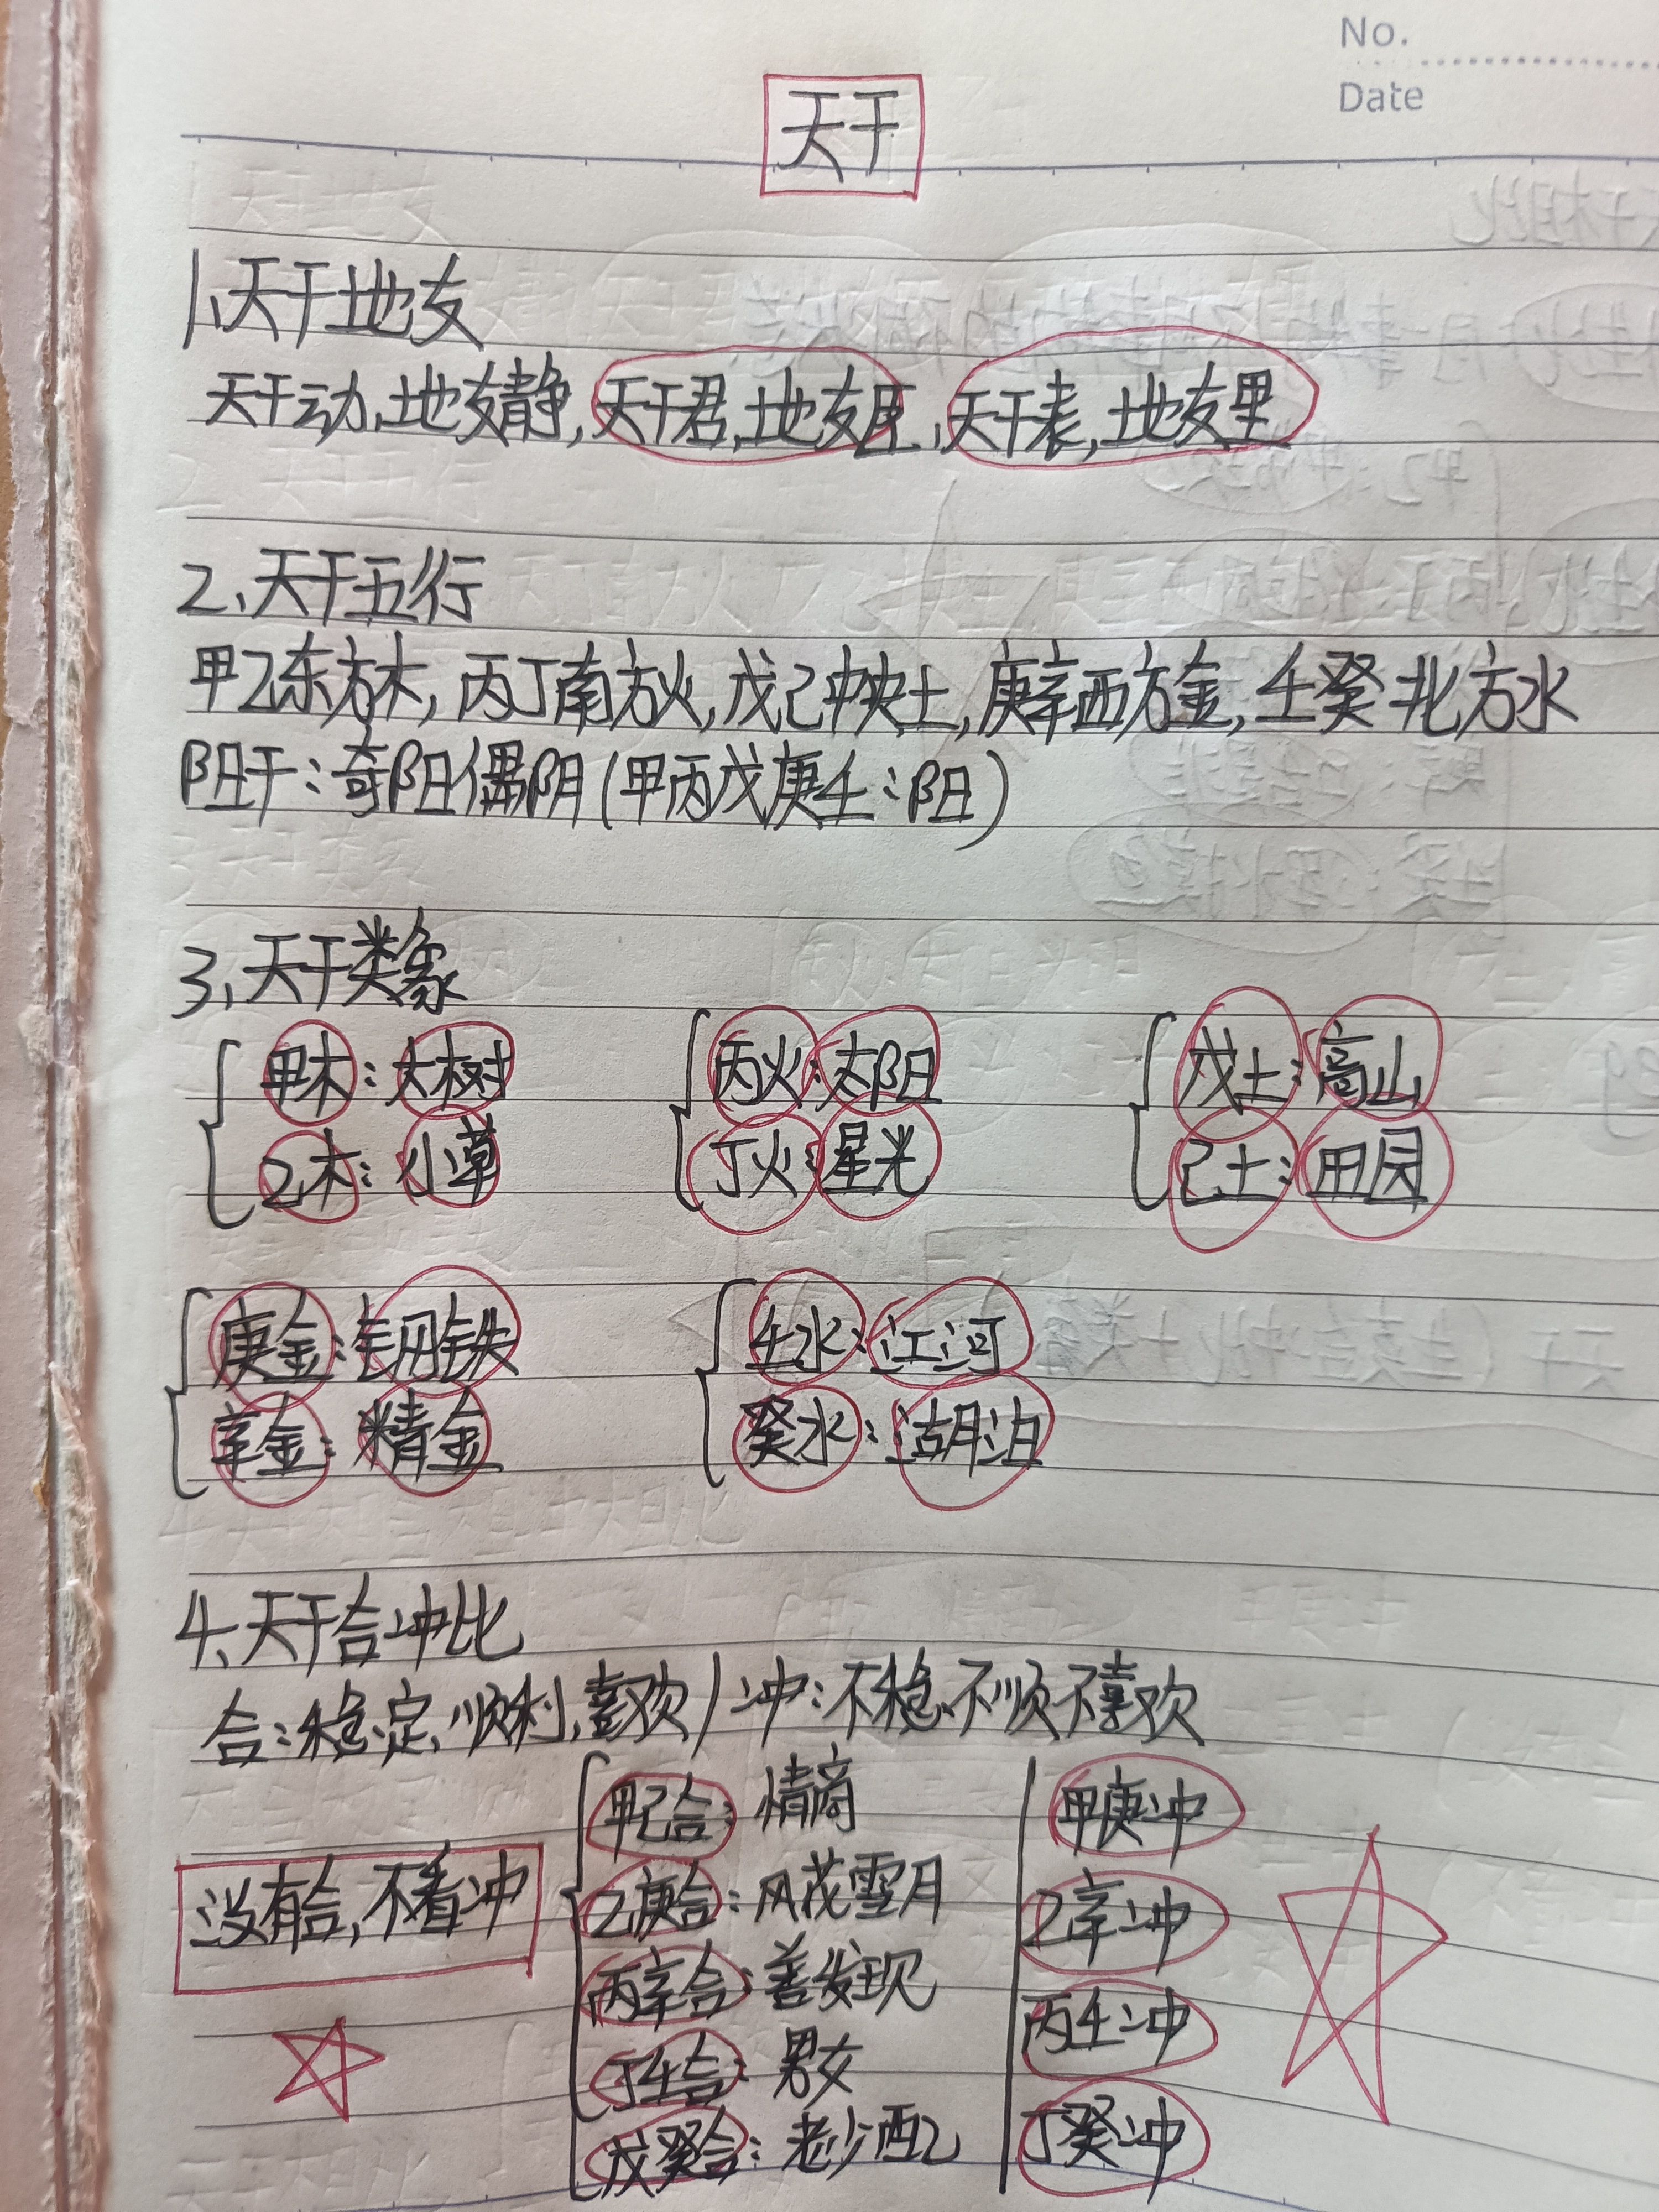 No.
Date
天干
1、天干地支
天干动,地支静,天干君,地支臣,天干表,地支里
2、天干五行
甲乙东方木,丙丁南方火,戊己中央土,庚辛西方金,壬癸北方水
阳干:奇阳偶阴(甲丙戊庚壬:阳)
3、天干类象
甲木:大树 丙火:太阳 戊土:高山
乙木:小草 丁火:星光 己土:田园
庚金:钢铁 壬水:江河
辛金:精金 癸水:湖泊
4、天干合冲比
合:稳定,顺利,喜欢/冲:不稳、不顺不喜欢
甲己合:情商 甲庚冲
没有合,不看冲 乙庚合:风花雪月 乙辛冲
丙辛合:善发现 丙壬冲
丁壬合:男女 丁癸冲
戊癸合:老少配